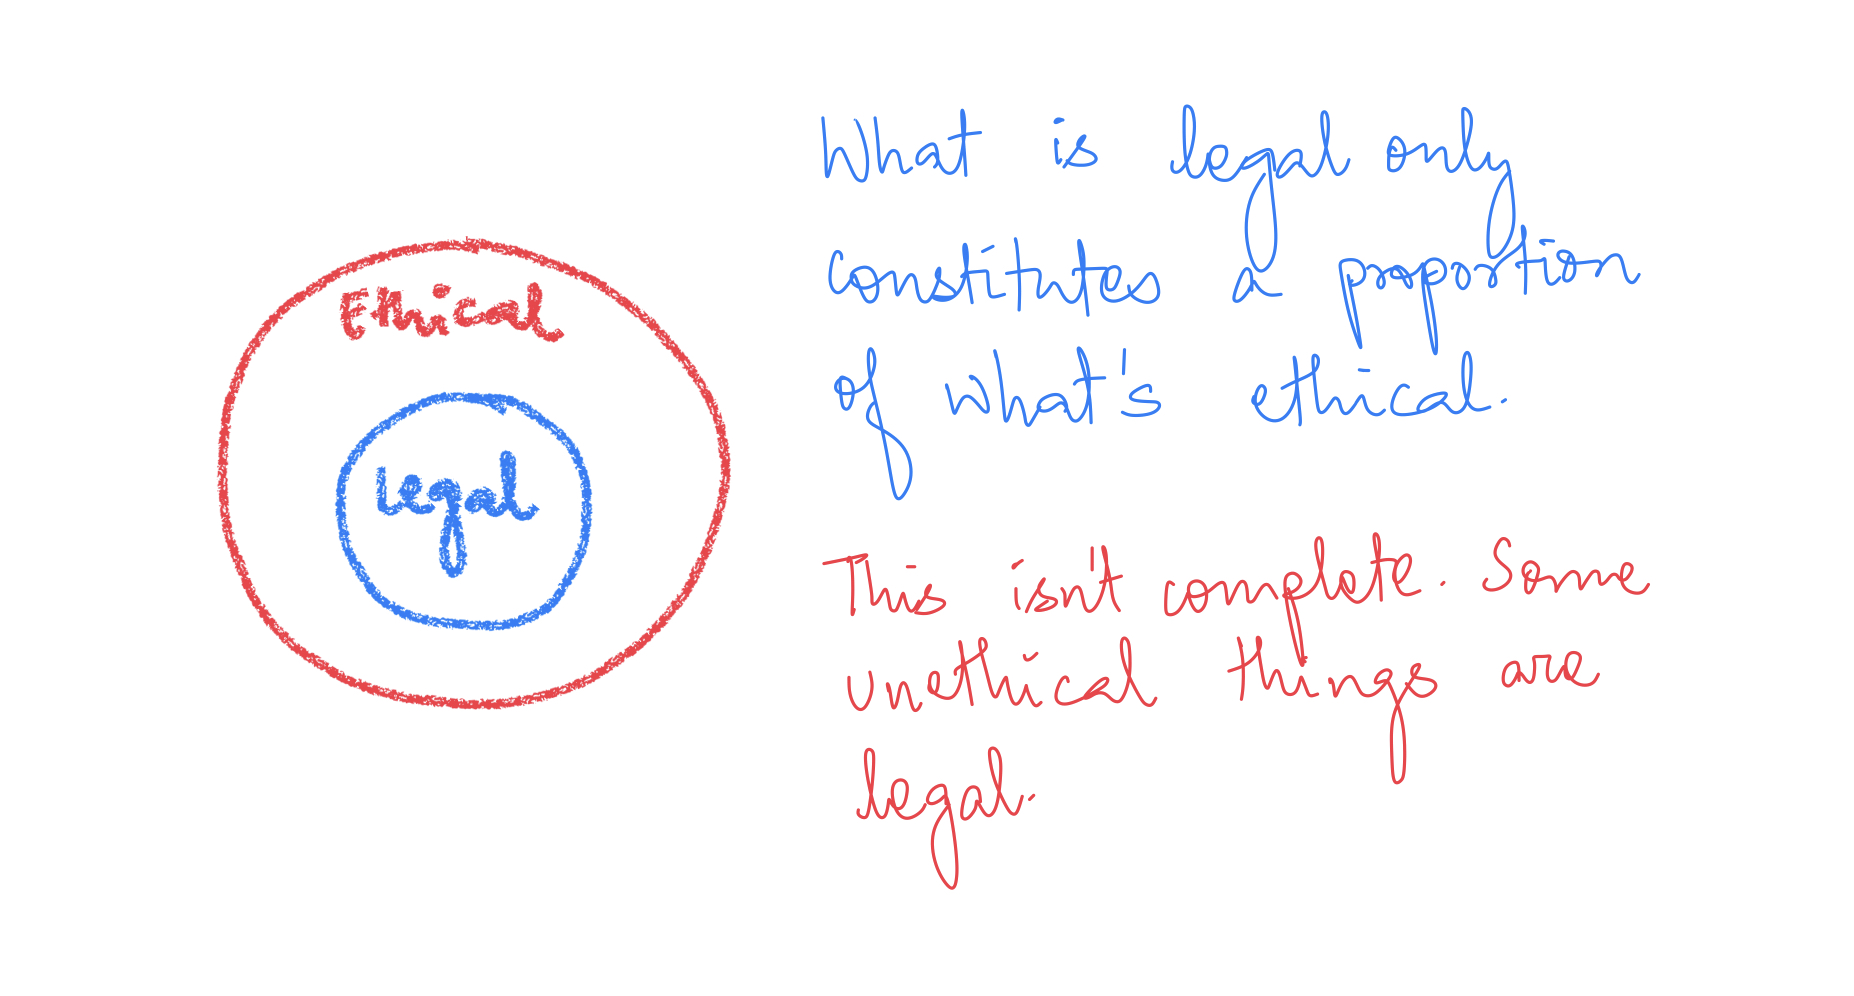 Ethical
Legal
What is legal only
constitutes a proportion
of what's ethical.
This isn't complete. Some
unethical things are
legal.